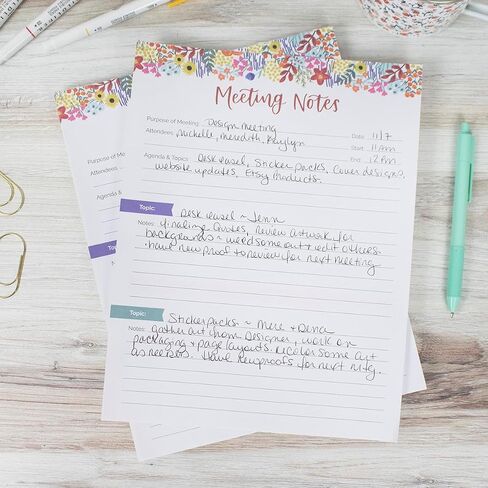 Meeting Notes
Purpose of Meeting: Design meeting
Date 11/7
Attendees Michelle, Meredith, Kaylyn
Start 11am
End 12pm
Agenda & Topics Desk easel, Sticker packs, Cover designs,
website updates, Etsy products.
Topic: Desk easel ~ Jenn
Notes: finalize quotes, Review artwork for
backgrounds ~ weed some out & edit others
. have new proof to review for next meeting
Topic: Sticker packs ~ Mere & Dena
Notes: gather art from Designer, work on
packaging & page layouts. Recolor some art
as needed. Have new proofs for next mtg.
Purpose of
Attendees
Agenda &
Topic:
Notes: